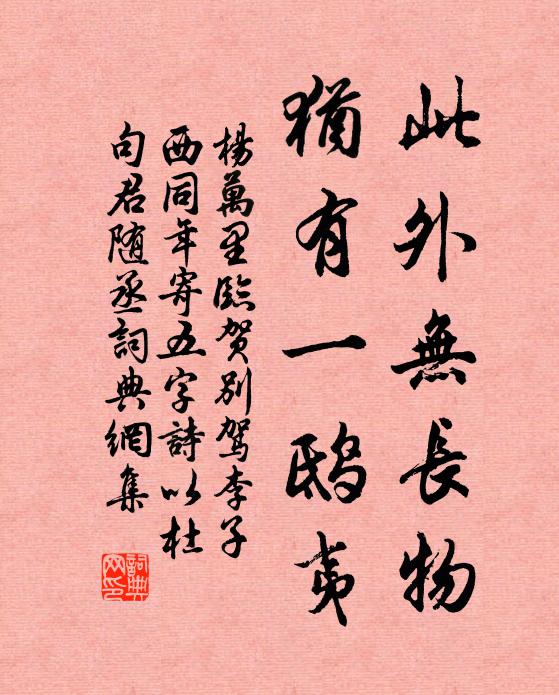 此外無長物
猶有一鴟夷
楊萬里臨賀別駕李子
西同年寄五字詩以杜
句君随丞詞典網集
詞典
网印